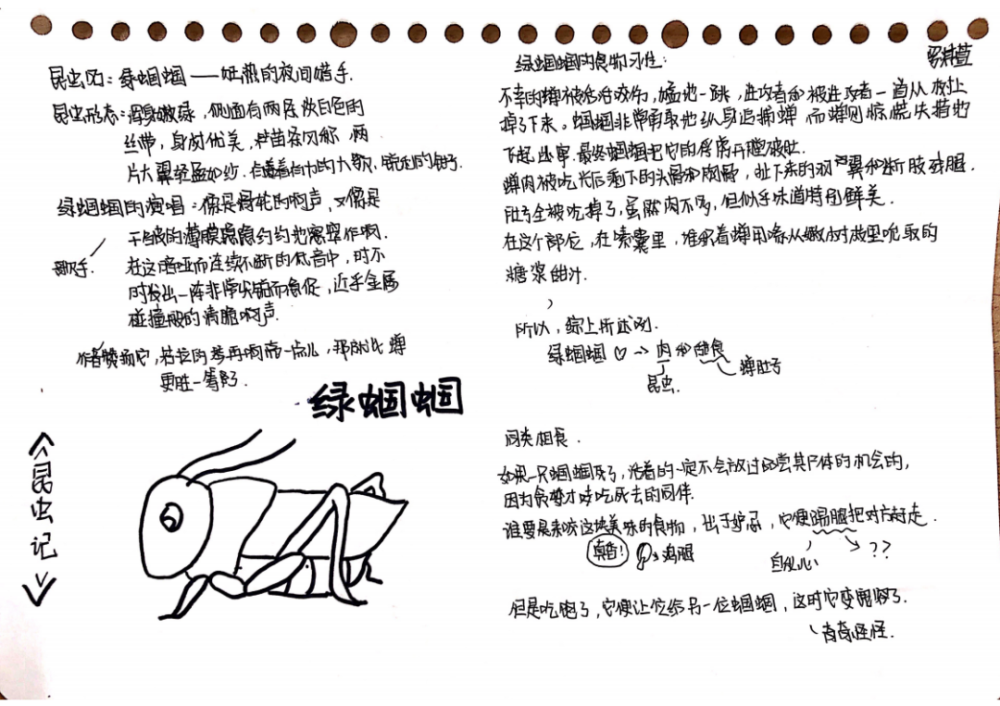 昆虫名:绿蝈蝈——娴熟的夜间猎手.
昆虫形态:浑身嫩绿,侧面有两层淡白色的
丝带,身材优美,苗条匀称 两
片大翼轻盈如纱.
绿蝈蝈的演唱:像是滑轮的响声,又像是
干皱的薄膜隐隐约约地窸窣作响.
歌手.
在这喑哑而连续不断的低音中,时不
时发出一阵非常尖锐而急促,近乎金属
碰撞般的清脆响声.
作者赞扬它,若拉的琴再响亮一点儿,那就比蝉
更胜一筹了.
绿蝈蝈
《昆虫记》
绿蝈蝈的食物习性:
不幸的蝉被活活咬伤,猛地一跳,进攻者和被进攻者一首从树上
掉了下来。蝈蝈非常勇敢地纵身追捕蝉 而蝉则惊慌失措地
飞起出窜.最终蝈蝈把它的俘虏开膛破肚.
蝉肉被吃光后剩下的头骨和胸骨,扯下来的羽翼和断肢残腿.
肚子全被吃掉了,虽然肉不多,但似乎味道特别鲜美.
在这个部位,在嗉囊里,堆积着蝉用喙从嫩树枝里吮取的
糖浆甜汁.
所以,综上所述列.
绿蝈蝈♡→肉和甜食
昆虫.
蝉肚子
同类相食.
如果一只蝈蝈死了,活着的一定不会放过品尝其尸体的机会的,
因为食物才吃死去的同伴.
谁要是来咬这块美味的食物,出于护品,它便踢腿把对方赶走.
鸡腿
自私心
??
但是吃饱了,它便让位给另一位蝈蝈,这时它变慷慨了.
奇奇怪怪.